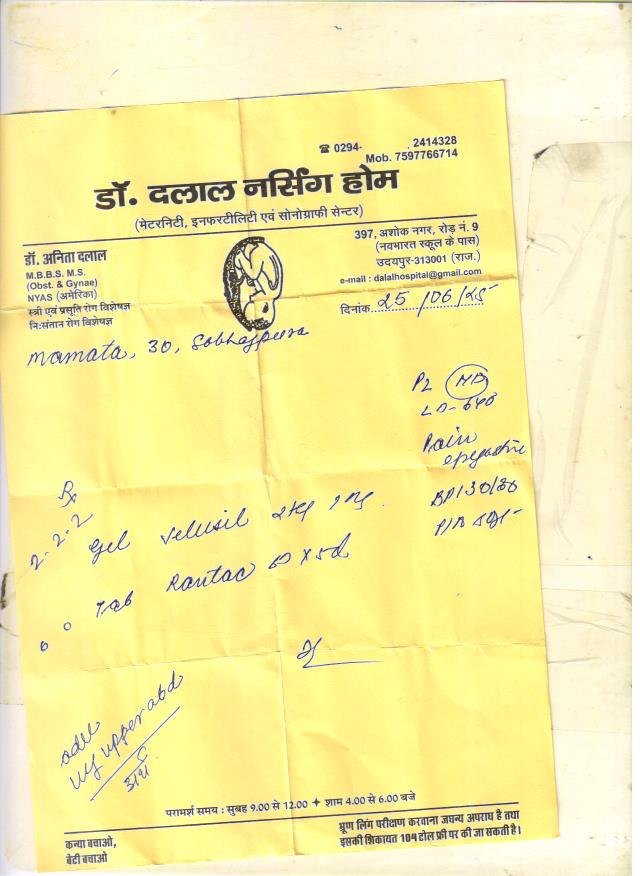 ☎ 0294- 2414328
Mob. 7597766714
डॉ. दलाल नर्सिंग होम
(मेटरनिटी, इनफरटीलिटी एवं सोनोग्राफी सेन्टर)
डॉ. अनिता दलाल
M.B.B.S. M.S.
(Obst. & Gynae)
NYAS (अमेरिका)
स्त्री एवं प्रसूति रोग विशेषज्ञ
नि:संतान रोग विशेषज्ञ
397, अशोक नगर, रोड़ नं. 9
(नवभारत स्कूल के पास)
उदयपुर-313001 (राज.)
e-mail : dalalhospital@gmail.com
दिनांक 25/06/25
Mamata, 30, Sobhagpura
P2
Pain
epigastric
BP130/80
Rx
2-2-2 Gel Velusil
Tab Rantac
upper abd
परामर्श समय : सुबह 9.00 से 12.00 ✦ शाम 4.00 से 6.00 बजे
कन्या बचाओ,
बेटी बचाओ
भ्रूण लिंग परीक्षण करवाना जघन्य अपराध है तथा
इसकी शिकायत 104 टोल फ्री पर की जा सकती है।